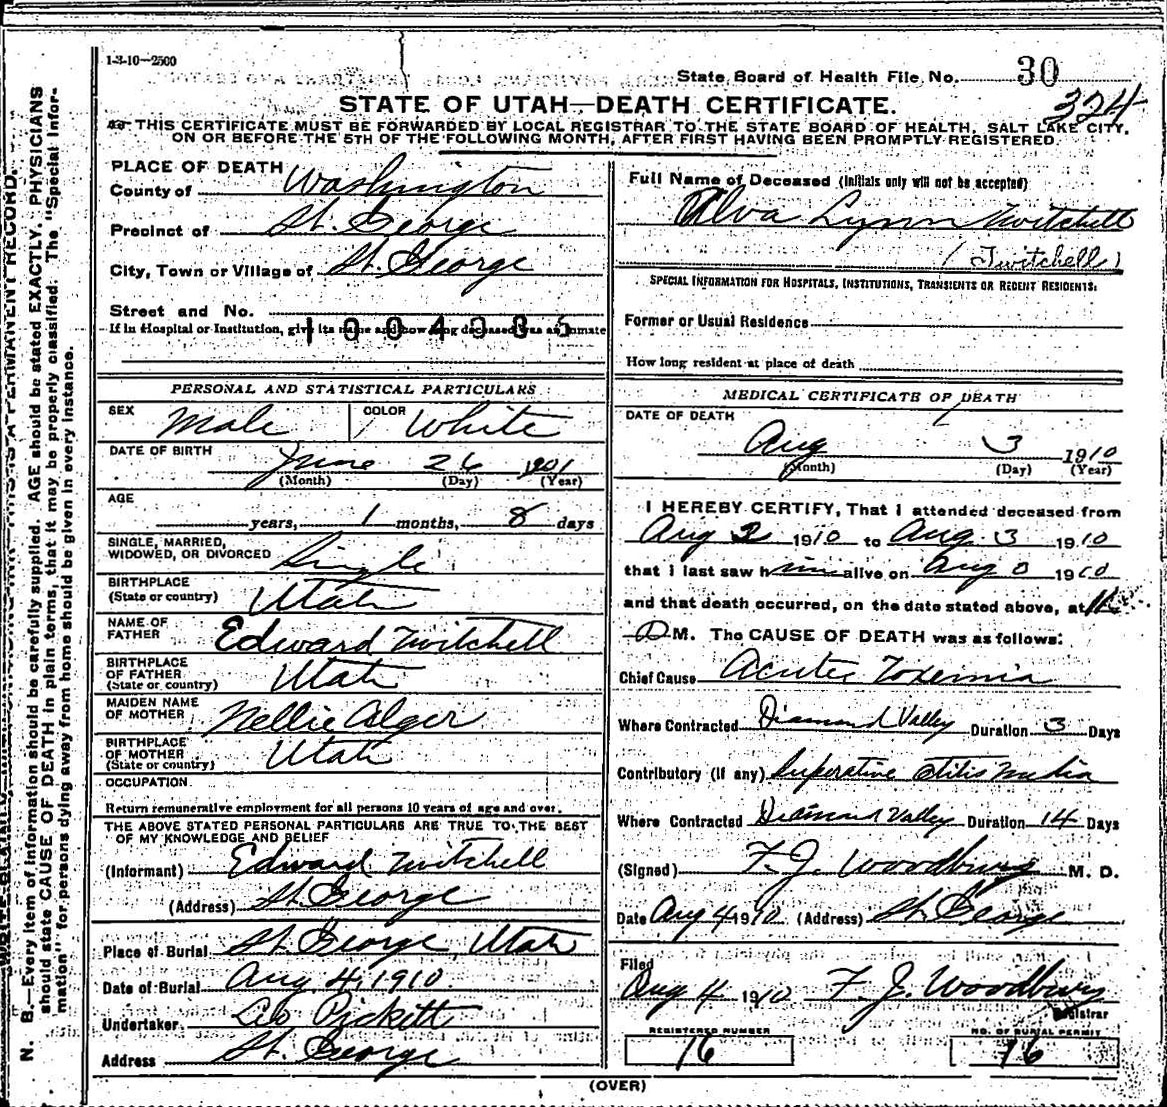 1-3-10—2500
State Board of Health File No. 30
324
STATE OF UTAH—DEATH CERTIFICATE.
THIS CERTIFICATE MUST BE FORWARDED BY LOCAL REGISTRAR TO THE STATE BOARD OF HEALTH, SALT LAKE CITY,
ON OR BEFORE THE 5TH OF THE FOLLOWING MONTH, AFTER FIRST HAVING BEEN PROMPTLY REGISTERED.
PLACE OF DEATH
County of Washington
Precinct of St. George
City, Town or Village of St. George
Street and No.
If in Hospital or Institution, give its name and how long deceased was an inmate
PERSONAL AND STATISTICAL PARTICULARS
SEX Male COLOR White
DATE OF BIRTH
June 26 1901
(Month) (Day) (Year)
AGE
years, 1 months, 8 days
SINGLE, MARRIED,
WIDOWED, OR DIVORCED Single
BIRTHPLACE
(State or country) Utah
NAME OF
FATHER Edward Twitchell
BIRTHPLACE
OF FATHER
(State or country) Utah
MAIDEN NAME
OF MOTHER Nellie Alger
BIRTHPLACE
OF MOTHER
(State or country) Utah
OCCUPATION
Return remunerative employment for all persons 10 years of age and over.
THE ABOVE STATED PERSONAL PARTICULARS ARE TRUE TO THE BEST
OF MY KNOWLEDGE AND BELIEF
(Informant) Edward Twitchell
(Address) St George
Place of Burial St. George, Utah
Date of Burial Aug. 4, 1910.
Undertaker Geo Pickett
Address St. George
Full Name of Deceased (Initials only will not be accepted)
Alva Lynn Twitchell
(Twitchell)
SPECIAL INFORMATION FOR HOSPITALS, INSTITUTIONS, TRANSIENTS OR RECENT RESIDENTS:
Former or Usual Residence
How long resident at place of death
MEDICAL CERTIFICATE OF DEATH
DATE OF DEATH
Aug 3 1910
(Month) (Day) (Year)
I HEREBY CERTIFY, That I attended deceased from
Aug 2 1910 to Aug. 3 1910
that I last saw him alive on Aug 1910
and that death occurred, on the date stated above, at
M. The CAUSE OF DEATH was as follows:
Chief Cause Acute Toxemia
Where Contracted Diamond Valley Duration 3 Days
Contributory (if any) Superative Otitis Media
Where Contracted Diamond Valley Duration 14 Days
(Signed) F. J. Woodbury M. D.
Date Aug 4 1910 (Address) St. George
Filed
Aug 4 1910 F. J. Woodbury
Registrar
REGISTERED NUMBER
16
NO. OF BURIAL PERMIT
16
(OVER)
N. B.—Every item of information should be carefully supplied. AGE should be stated EXACTLY. PHYSICIANS
should state CAUSE OF DEATH in plain terms, that it may be properly classified. The "Special Infor-
mation" for persons dying away from home should be given in every instance.